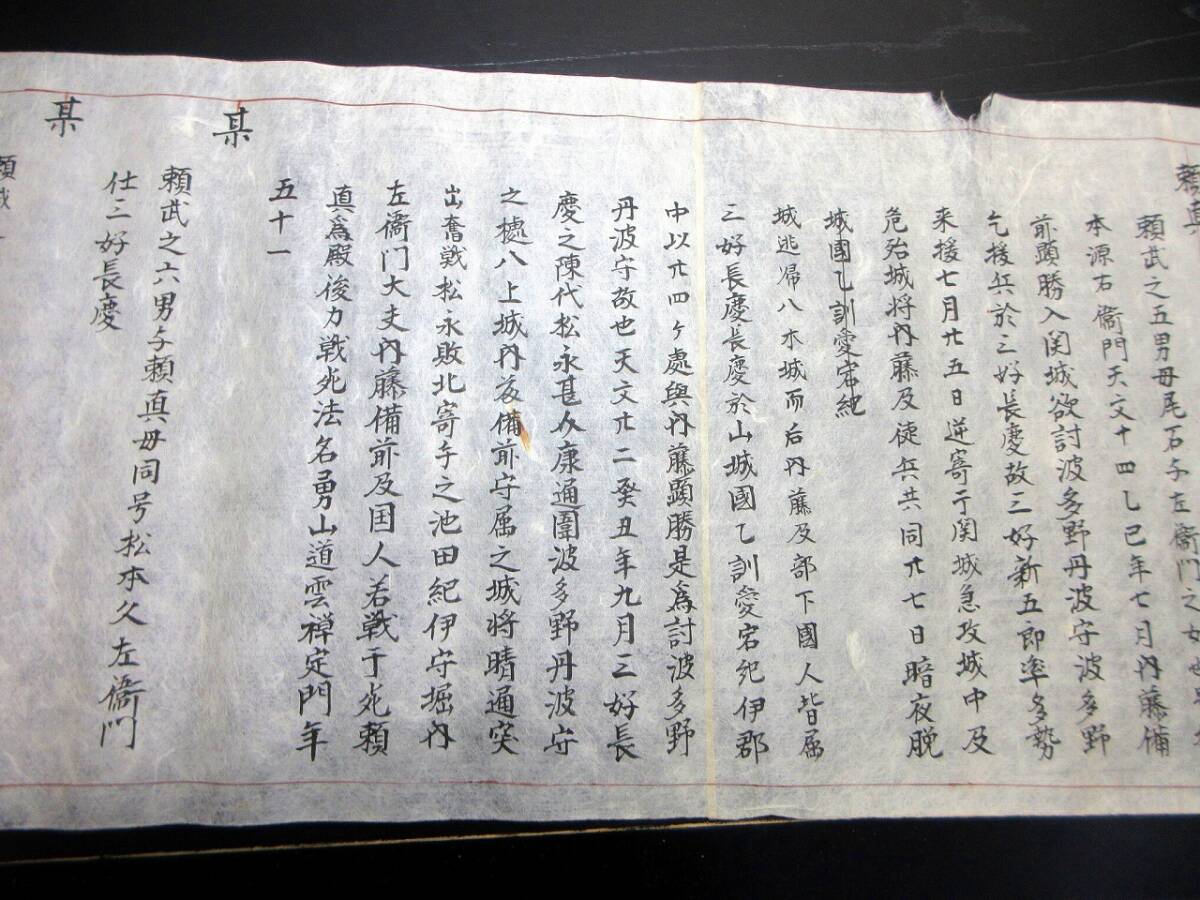 頼真
頼武之五男母尾石与左衞門之女
本源右衞門天文十四乙巳年七月内藤備
前顕勝入関城欲討波多野丹波守波多野
乞援兵於三好長慶故三好新五郎率多勢
来援七月廿五日逆寄于関城急攻城中及
危殆城将内藤及徒兵共同廿七日暗夜脱
城國乙訓愛宕紀
城逃帰八木城而后内藤及部下國人皆属
三好長慶長慶於山城國乙訓愛宕紀伊郡
中以廿四ヶ處與内藤顕勝是為討波多野
丹波守故也天文廿二癸丑年九月三好長
慶之陳代松永甚介康通圍波多野丹波守
之據八上城内藤備前守属之城将晴通突
出奮戦松永敗北寄手之池田紀伊守堀内
左衞門大夫内藤備前及国人若戦于死頼
真為殿後力戦死法名勇山道雲禅定門年
五十一
某
頼武之六男与頼真母同号松本久左衞門
仕三好長慶
某